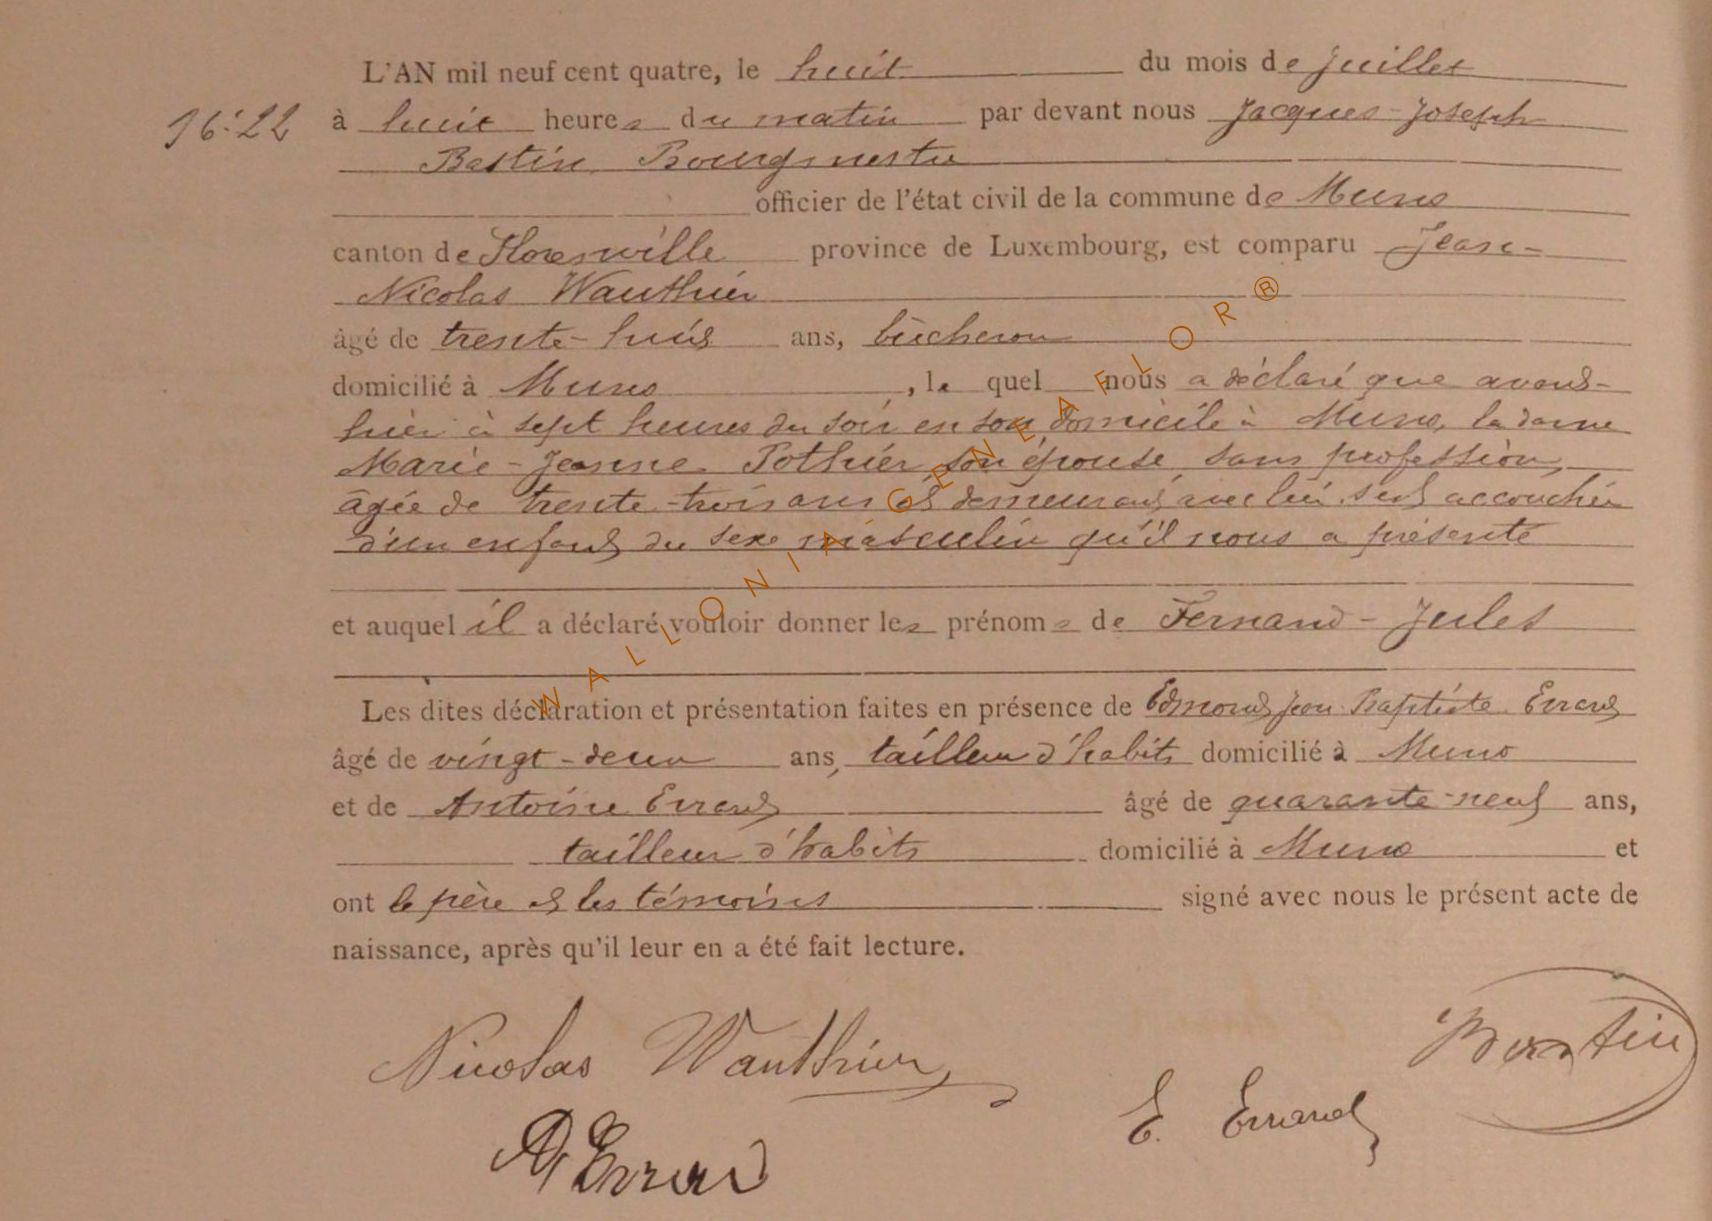 L'AN mil neuf cent quatre, le huit du mois de juillet
16:22
à huit heures du matin par devant nous Jacques-Joseph
Bastin, Bourgmestre
officier de l'état civil de la commune de Muno
canton de Florenville province de Luxembourg, est comparu Jean-
Nicolas Wauthier
âgé de trente-huit ans, bûcheron
domicilié à Muno, lequel nous a déclaré que avant-
hier à sept heures du soir en son domicile à Muno, la dame
Marie-Jeanne Pothier son épouse, sans profession,
âgée de trente-trois ans et demeurant avec lui, est accouchée
d'un enfant du sexe masculin qu'il nous a présenté
et auquel il a déclaré vouloir donner les prénoms de Fernand-Jules
Les dites déclaration et présentation faites en présence de Edmond Jean Baptiste Errard
âgé de vingt-deux ans, tailleur d'habits domicilié à Muno
et de Antoine Errard âgé de quarante-neuf ans,
tailleur d'habits domicilié à Muno et
ont le père et les témoins signé avec nous le présent acte de
naissance, après qu'il leur en a été fait lecture.
Nicolas Wauthier
Bastin
E. Errard
A Errard
WALLONIA GENEAFLOR®